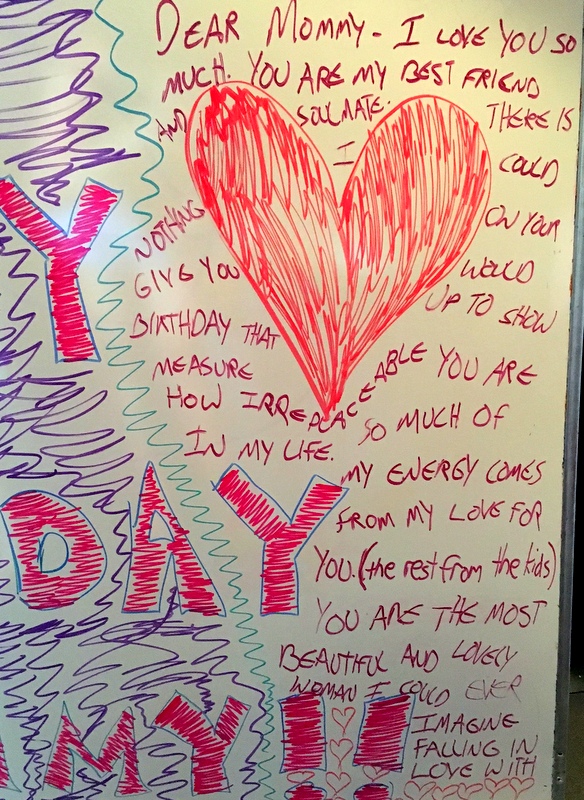 DEAR MOMMY - I LOVE YOU SO
MUCH. YOU ARE MY BEST FRIEND
AND SOULMATE. THERE IS
NOTHING I COULD
GIVE YOU ON YOUR
BIRTHDAY THAT WOULD
MEASURE UP TO SHOW
HOW IRREPLACEABLE YOU ARE
IN MY LIFE. SO MUCH OF
MY ENERGY COMES
FROM MY LOVE FOR
YOU. (the rest from the kids)
YOU ARE THE MOST
BEAUTIFUL AND LOVELY
WOMAN I COULD EVER
IMAGINE
FALLING IN
LOVE WITH
Y
DAY
MY!!